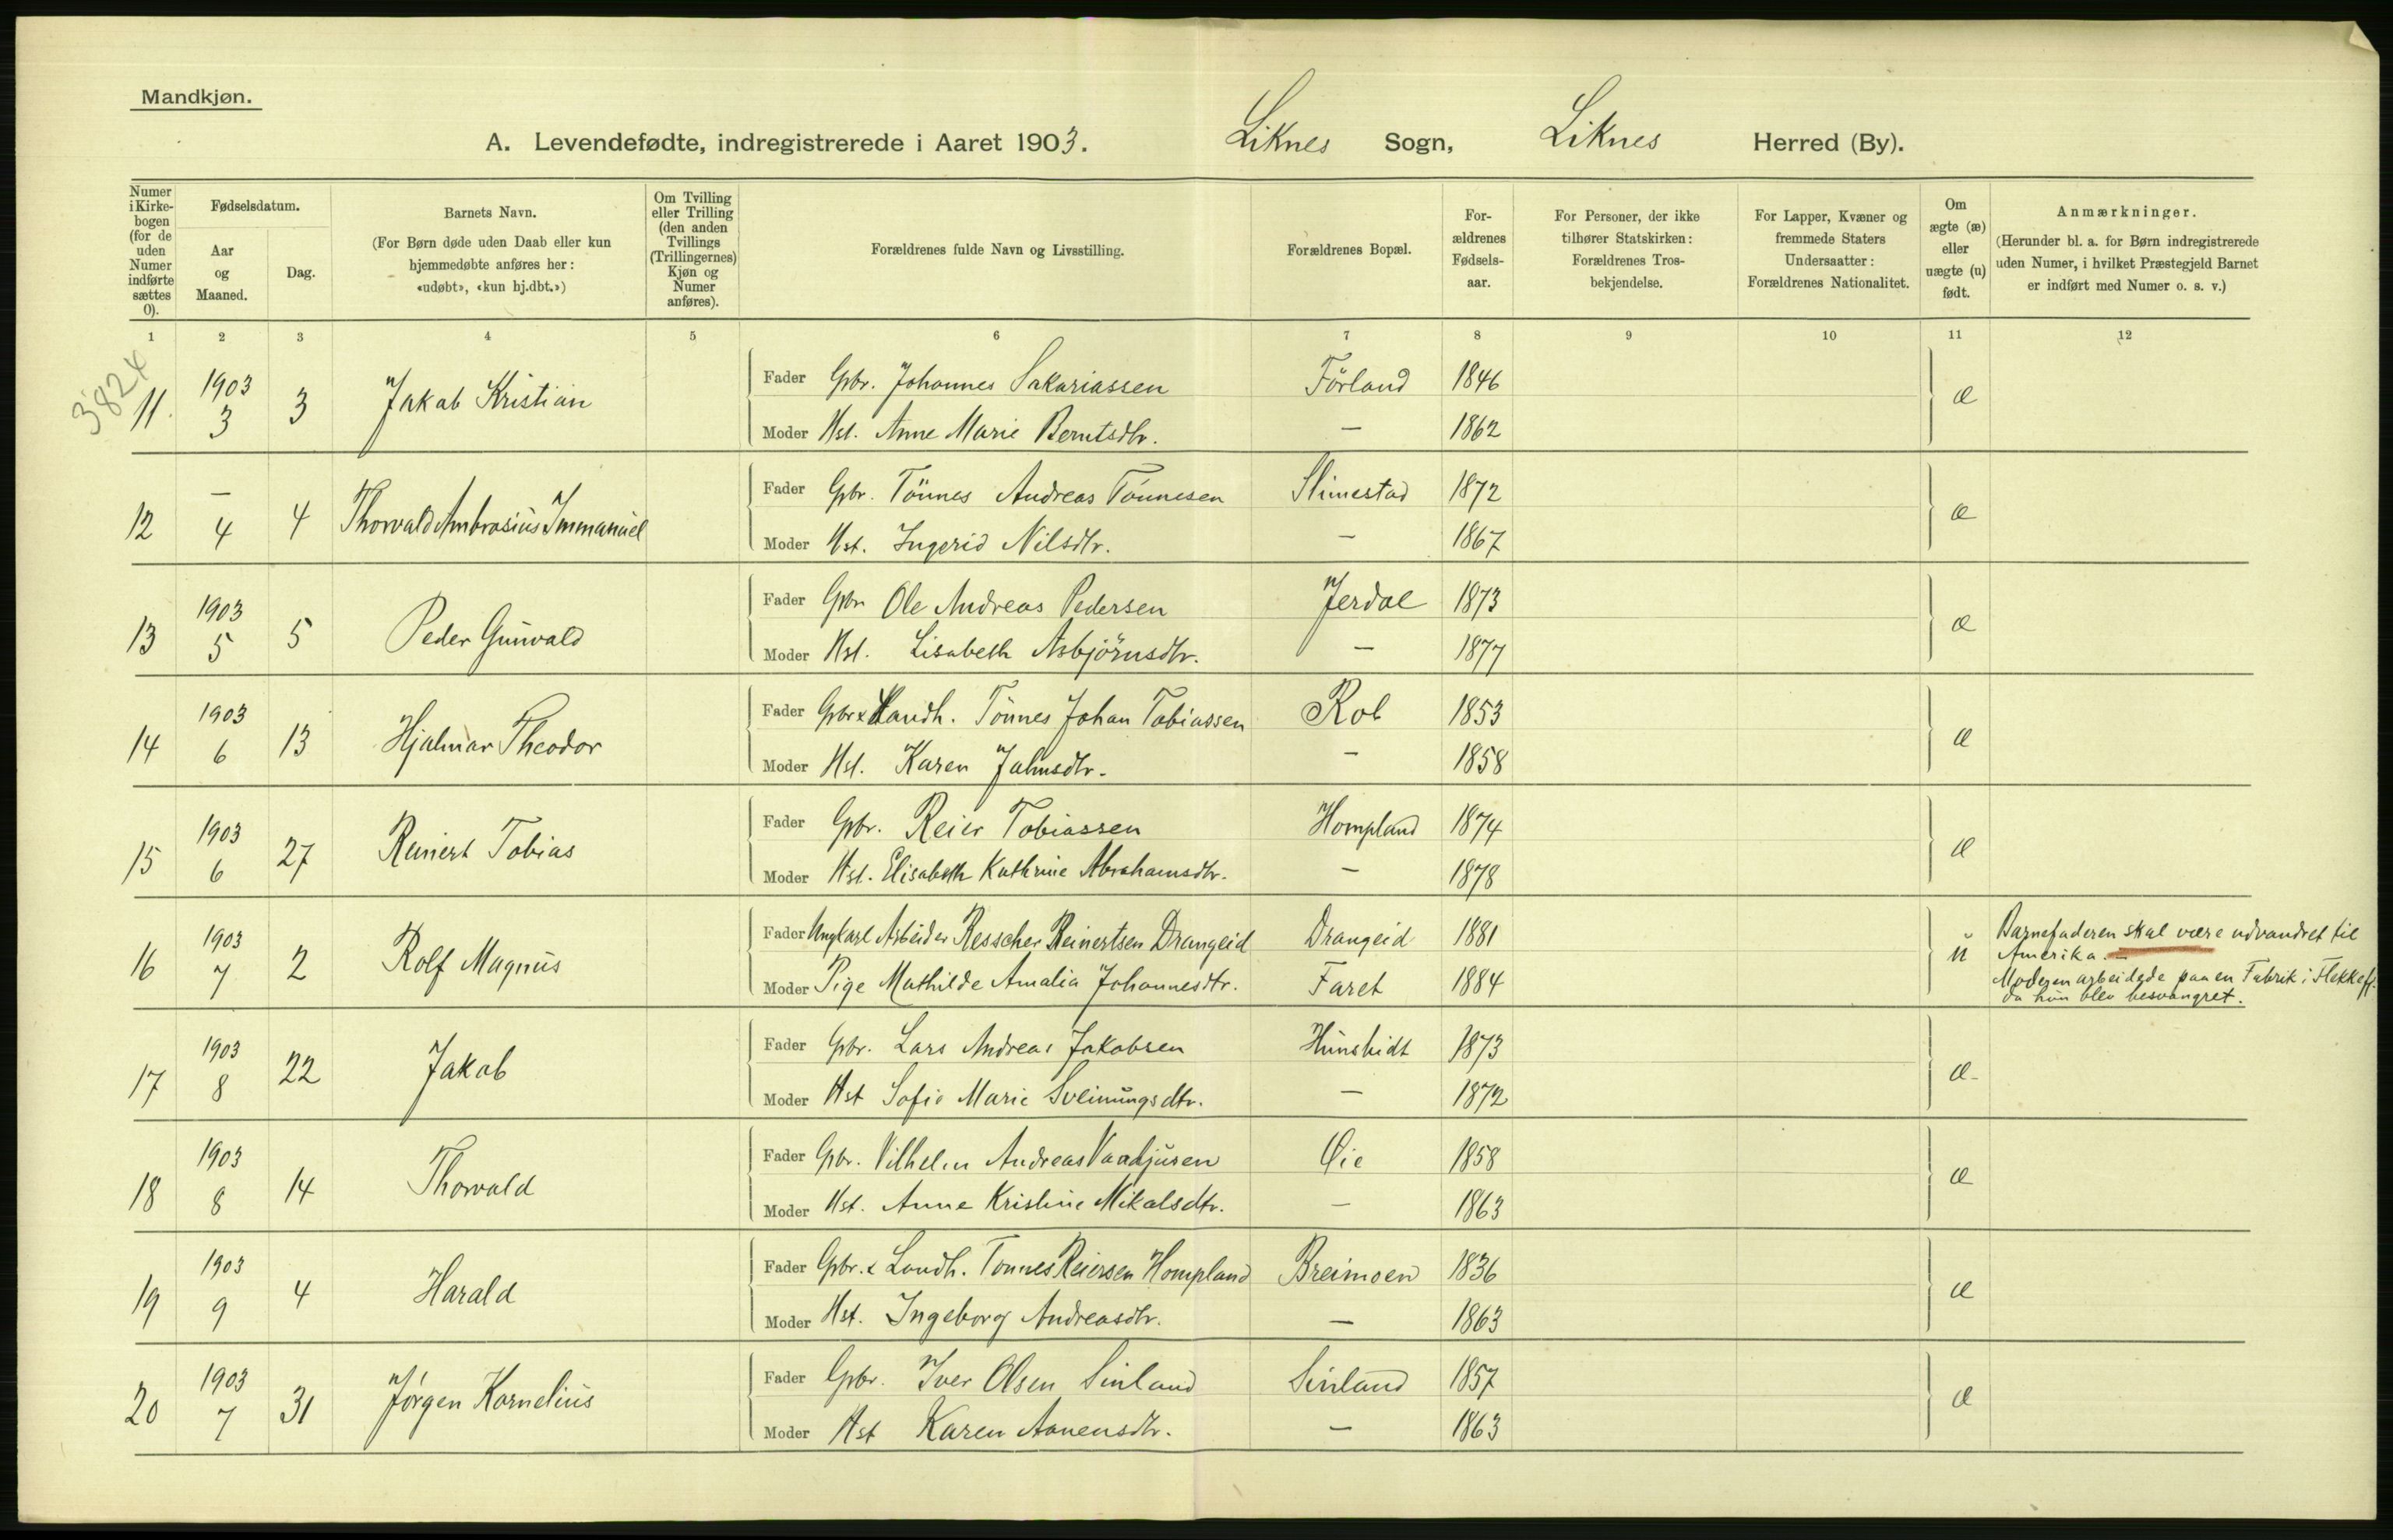 Mandkjøn.
A. Levendefødte, indregistrerede i Aaret 1903. Liknes Sogn, Liknes Herred (By).
Numer i Kirkebogen (for de uden Numer indførte sættes 0).
Fødselsdatum.
Aar og Maaned.
Dag.
Barnets Navn.
(For Børn døde uden Daab eller kun
hjemmedøbte anføres her:
«udøbt», «kun hj.dbt.»)
Om Tvilling
eller Trilling
(den anden
Tvillings
(Trillingernes)
Kjøn og
Numer
anføres).
Forældrenes fulde Navn og Livsstilling.
Forældrenes Bopæl.
For-
ældrenes
Fødsels-
aar.
For Personer, der ikke
tilhører Statskirken:
Forældrenes Tros-
bekjendelse.
For Lapper, Kvæner og
fremmede Staters
Undersaatter:
Forældrenes Nationalitet.
Om
ægte (æ)
eller
uægte (u)
født.
Anmærkninger.
(Herunder bl. a. for Børn indregistrerede
uden Numer, i hvilket Præstegjeld Barnet
er indført med Numer o. s. v.)
1 2 3 4 5 6 7 8 9 10 11 12
3824
11. 1903 3 3 Jakab Kristian
Fader Gbr. Johannes Sakariassen Förland 1846 æ
Moder Hst. Anne Marie Berntsdtr. — 1862
12 — 4 4 Thorvald Ambrosius Immanuel
Fader Gbr. Tönnes Andreas Tönnesen Slimestad 1872 æ
Moder Hst. Ingerid Nilsdtr. — 1867
13 1903 5 5 Peder Gunvald
Fader Gbr Ole Andreas Pedersen Jerdal 1873 æ
Moder Hst. Lisabeth Asbjörnsdtr. — 1877
14 1903 6 13 Hjalmar Theodor
Fader Gbr & Handh. Tönnes Johan Tobiassen 1853 æ
Moder Hst. Karen Jahnsdtr. — 1858
15 1903 6 27 Reinert Tobias
Fader Gbr. Reier Tobiassen Hompland 1874 æ
Moder Hst. Elisabeth Kathrine Abrahamsdtr. — 1878
16 1903 7 2 Rolf Magnus
Fader Ungkarl Arbeider Resscher Reinertsen Drangeid Drangeid 1881 u
Moder Pige Mathilde Amalia Johannesdtr. Faret 1884
Barnefaderen skal være udvandret til
Amerika. —
Moderen arbeidede paa en Fabrik i Flekkefj.
da hun blev besvangret.
17 1903 8 22 Jakob
Fader Gbr. Lars Andreas Jakobsen 1873 æ
Moder Hst Sofie Marie Sveinungsdtr. — 1872
18 1903 8 14 Thorvald
Fader Gbr. Vilhelm Andreas Öie 1858 æ
Moder Hst. Anne Kristine Mikalsdtr. — 1863
19 1903 9 4 Harald
Fader Gbr. & Landh. Tönnes Reiersen Hompland Breimoen 1836 æ
Moder Hst. Ingeborg Andreasdtr. — 1863
20 1903 7 31 Jörgen Kornelius
Fader Gbr. Iver Olsen Sinland Sinland 1857 æ
Moder Hst Karen Aanensdtr. — 1863